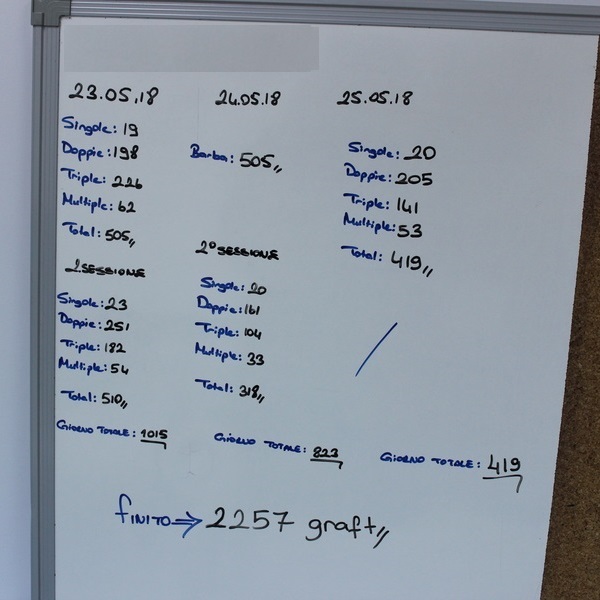 23.05.18
Singole: 19
Doppie: 198
Triple: 226
Multiple: 62
Total: 505,,
2 SESSIONE
Singole: 23
Doppie: 251
Triple: 182
Multiple: 54
Total: 510,,
GIORNO TOTALE: 1015
24.05.18
Barba: 505,,
2° SESSIONE
Singole: 20
Doppie: 161
Triple: 104
Multiple: 33
Total: 318,,
GIORNO TOTALE: 823
25.05.18
Singole: 20
Doppie: 205
Triple: 141
Multiple: 53
Total: 419,,
GIORNO TOTALE: 419
FINITO ⇒ 2257 graft,,